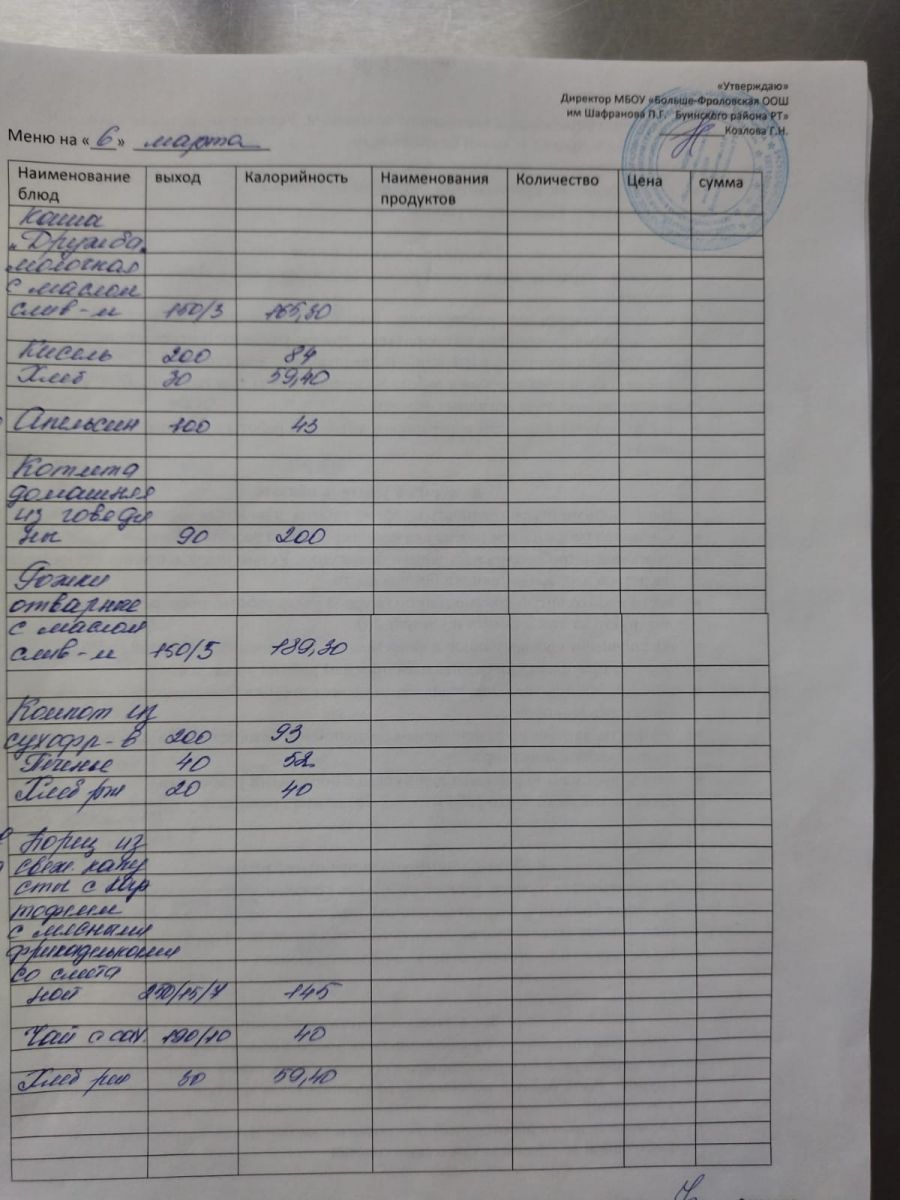 «Утверждаю»
Директор МБОУ «Больше-Фроловская ООШ
им Шафранова П.Г. Буинского района РТ»
Козлова Г.Н.
Меню на « 6 » марта
Наименование блюд выход Калорийность Наименования продуктов Количество Цена сумма
Каша
„Дружба"
молочная
с маслом
слив-м 150/3 165,30
Кисель 200 84
Хлеб 30 59,40
Апельсин 100 43
Котлета
домашняя
из говяди
ны 90 200
Рожки
отварные
с маслом
слив-м 150/5 189,30
Компот из
сухофр-в 200 93
Печенье 40 52
Хлеб рж 20 40
Борщ из
свеж. капу
сты с кар
тофелем
с мясными
фрикадельками
со смета
ной 250/15/7 145
Чай с сах. 190/10 40
Хлеб рж 30 59,40